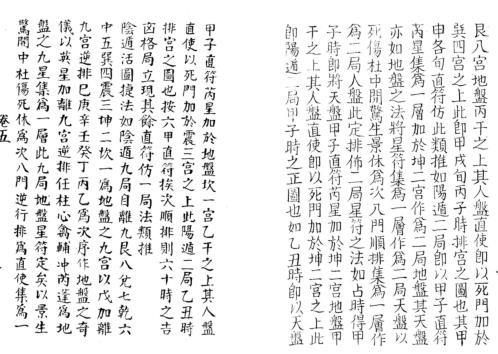 艮八宮地盤丙干之上其人盤直使即以死門加於
巽四宮之上此即甲戌旬丙子時排宮之圖也其甲
申各旬直符仿此類推如陽遁二局即以甲子直符
芮星集為一層加於坤二宮作為二局地盤其天盤
亦如地盤之法將星符集為一層作為二局天盤以
死傷杜中開驚生景休為次八門順排集為一層作
為二局人盤此定排佈二局星符之法如占時得甲
子時即將天盤甲子直符芮星加於坤二宮地盤甲
干之上其人盤直使即以死門加於坤二宮之上此
即陽遁二局甲子時之正圖也如乙丑時即以天盤
甲子直符芮星加於地盤坎一宮乙干之上其人盤
直使以死門加於震三宮之上此陽遁二局乙丑時
排宮之圖也按六甲直符挨次順排則六十時之吉
凶格局立現其餘直符仿一局法類推
陰遁活圖捷法如陰遁九局自離九艮八兌七乾六
中五巽四震三坤二坎一為地盤之九宮以戊加離
九宮逆排己庚辛壬癸丁丙乙為次序作地盤之奇
儀以英星加離九宮逆排任柱心禽輔冲芮蓬為地
盤之九星集為一層此九局地盤星符定矣以景生
驚開中杜傷死休為次八門逆行排為直使集為一
卷五